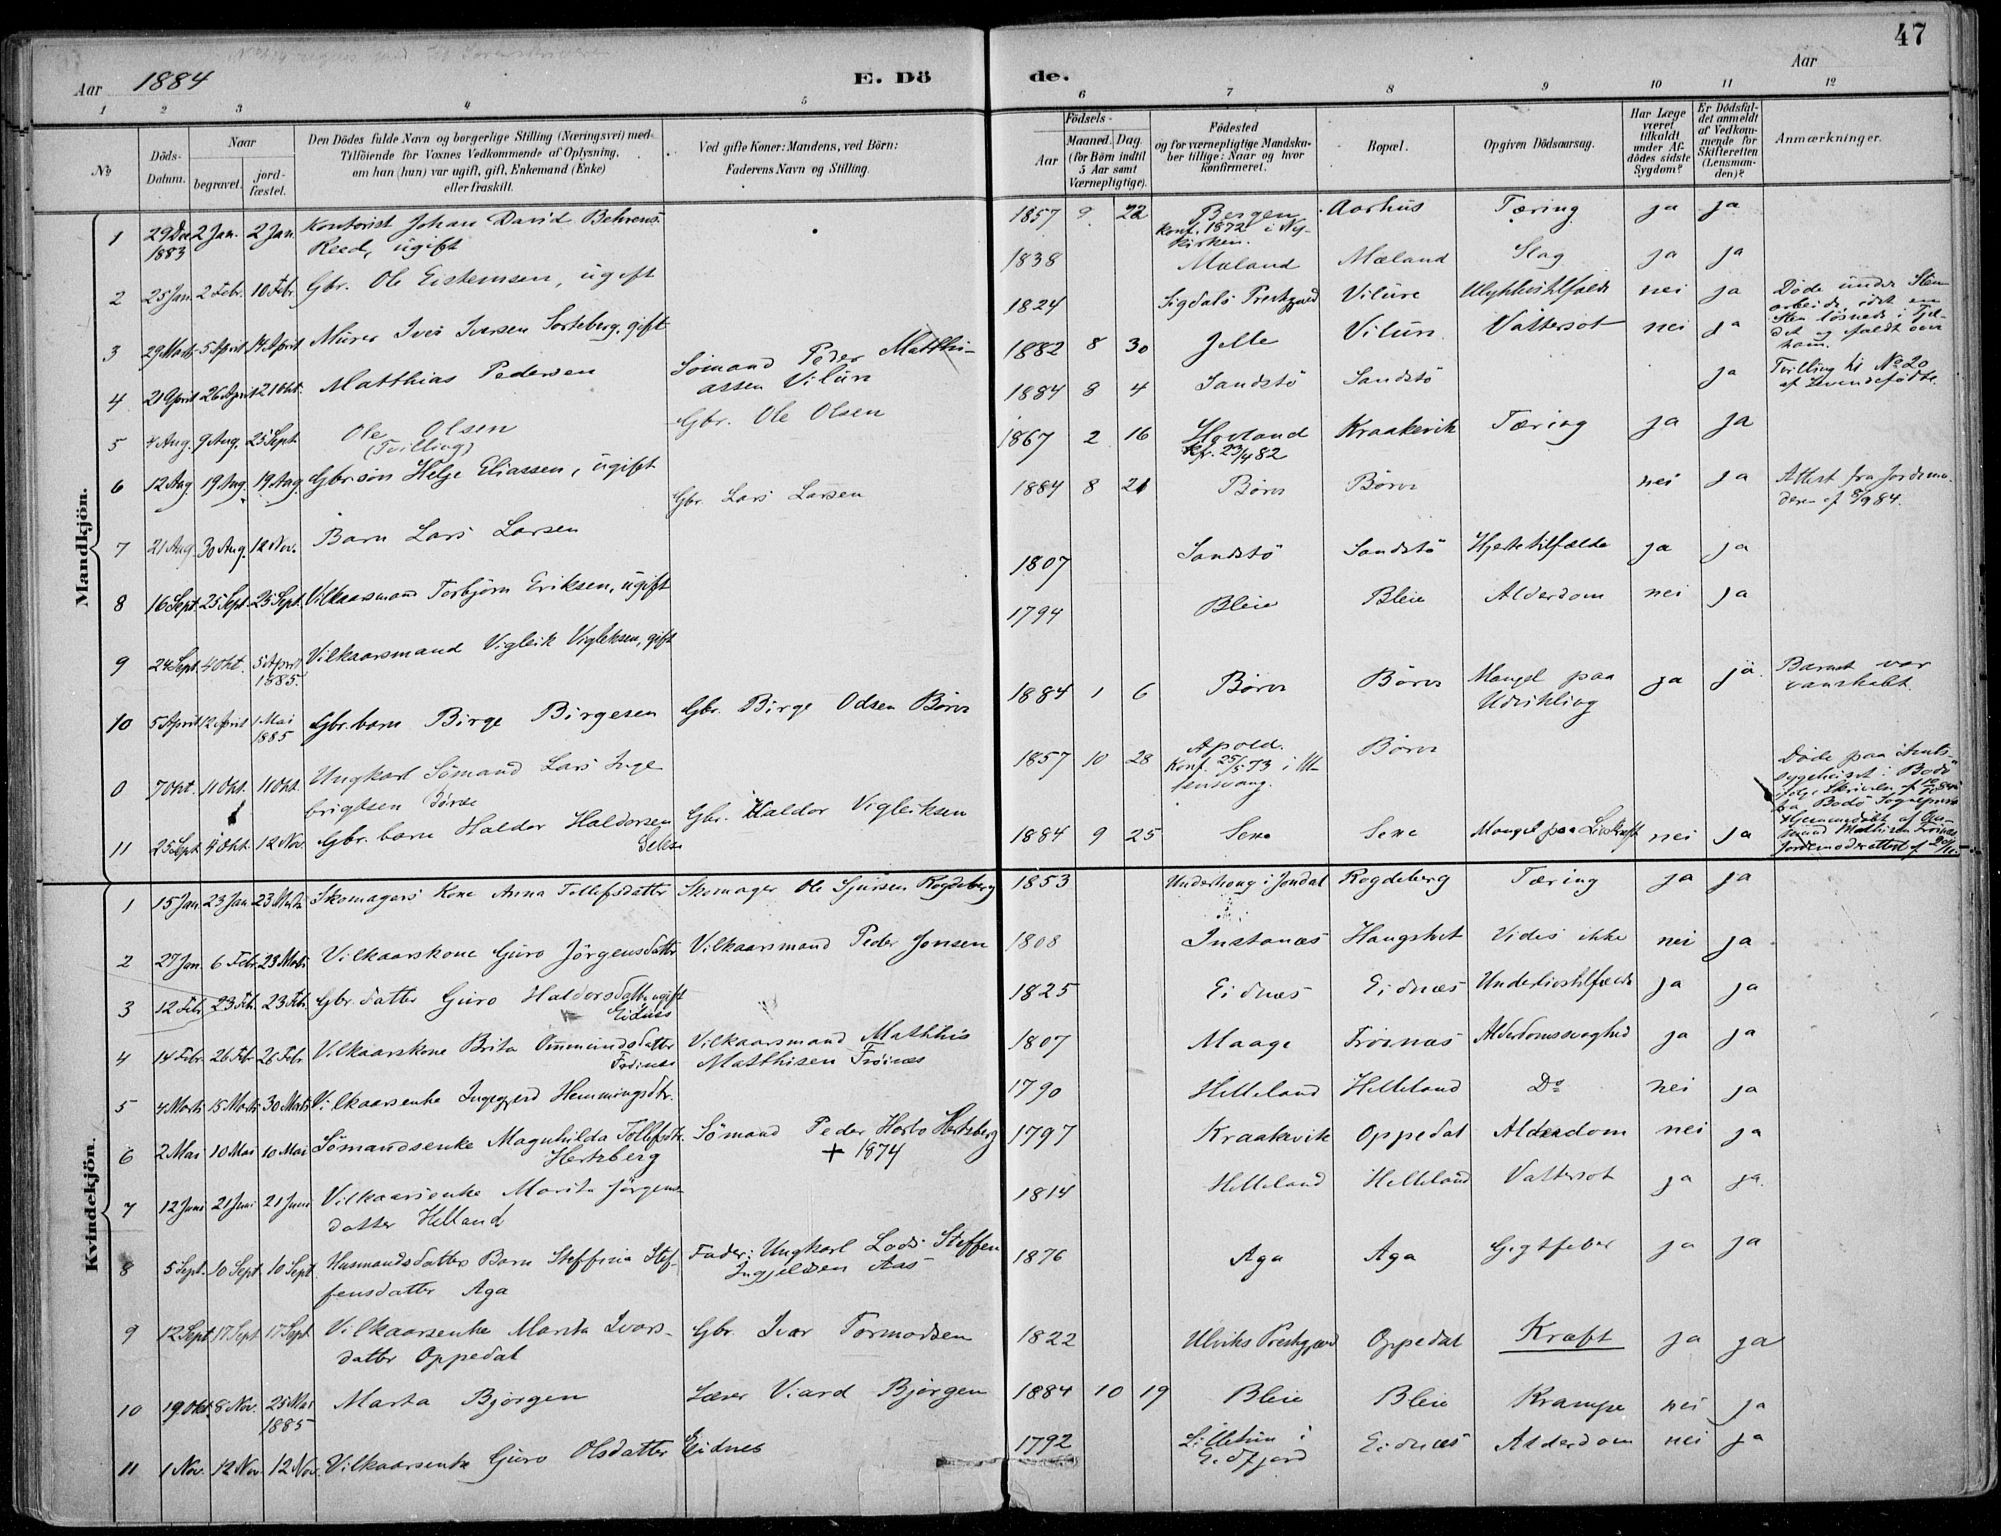 47
Aar 1884
E. Dö
de.
Aar
1 2 3 4 5 6 7 8 9 10 11 12
No
Döds-Datum.
Naar
begravet.
jord-fæstet.
Den Dödes fulde Navn og borgerlige Stilling (Næringsvei) med-
Tilföiende for Voxnes Vedkommende af Oplysning,
om han (hun) var ugift, gift, Enkemand (Enke)
eller fraskilt.
Ved gifte Koner: Mandens, ved Börn:
Faderens Navn og Stilling.
Födsels-
Aar
Maaned. Dag.
(for Börn indtil
5 Aar samt
Værnepligtige).
Födested
og for værnepligtige Mandska-
ber tillige: Naar og hvor
konfirmeret.
Bopæl.
Opgiven Dödsaarsag.
Har Læge
været
tilkaldt
under Af-
dödes sidste
Sygdom?
Er Dödsfal-
det anmeldt
af Vedkom-
mende for
Skifteretten
(Lensman-
den)?
Anmærkninger.
Mandkjön.
1 29 Dec 1883 2 Jan. 2 Jan. Kontorist Johan David Behrens Reed, ugift 1857 9 22 Bergen konf. 1872 i Ny-kirken. Aarhus Tæring ja ja
2 25 Jan. 2 Febr. 10 Febr. Gbr. Ole Eistemsen, ugift 1838 Mæland Mæland Slag ja ja
3 29 Marts 5 April 14 April Murer Iver Iversen Sorteberg, gift 1824 Sigdals Prestgjæld Vilure Ulykkestilfælde nei ja Døde under Sten-
arbeide, idet en
Sten løsnede i Fjel-
det og faldt over
ham.
4 21 April 26 April 21 Okt. Matthias Pedersen Sømand Peder Matthi-assen Vilure 1882 8 30 Jelle Vilure Vattersot nei ja
5 4 Aug. 9 Aug. 25 Sept. Ole Olsen (Tvilling) Gbr. Ole Olsen 1884 8 4 Sandstö Sandstö ja Tvilling til No 20
af Levendefødte.
6 12 Aug 19 Aug. 19 Aug. Gbr.søn Helje Eliassen, ugift 1867 2 16 Hovland kf. 23/4 82 Kraakevik Tæring ja ja
7 21 Aug. 30 Aug. 12 Nov. Barn Lars Larsen Gbr. Lars Larsen 1884 8 21 Børve Børve nei ja Attest fra Jordemo-
deren af 8/9 84.
8 16 Sept. 25 Sept. 25 Sept. Vilkaarsmand Torbjørn Eriksen, ugift 1807 Sandstö Sandstö Hjertetilfælde ja ja
9 24 Sept. 4 Okt. 5 April 1885. Vilkaarsmand Vigleik Vigleiksen, gift 1794 Bleie Bleie Alderdom nei ja
10 5 April 12 April 1 Mai 1885 Gbr.barn Birge Birgesen Gbr. Birge Odsen Børve 1884 1 6 Børve Børve Mangel paa Udvikling ja ja Barnet var
vanskabt.
0 7 Okt. 11 Okt. 11 Okt. Ungkarl Sømand Lars Inge-
brigtsen Børve 1857 10 28 Apold. Konf. 25/5 73 i Ul-lensvang. Børve Døde paa Amts-
sygehuset i Bodø
11 25 Sept 4 Okt. 12 Nov. Gbr. barn Haldor Haldorsen Sexe Gbr. Haldor Vigleiksen 1884 9 25 Sexe Sexe Mangel paa Livskraft nei ja
Kvindekjön.
1 15 Jan. 23 Jan 23 Marts Skomagers Kone Anna Tollefsdatter Skomager Ole Sjursen Rogdeberg 1853 Underhoug i Jondal Rogdeberg Tæring ja ja
2 27 Jan. 6 Febr. 23 Marts Vilkaarskone Guro Jørgensdatter Vilkaarsmand Peder Jonsen 1808 Instanæs Haugstvet Vides ikke nei ja
3 12 Febr. 23 Febr. 23 Febr. Gbr. datter Guro Haldorsdatter ugift Eidnæs 1825 Eidnæs Eidnæs Underlivstilfælde ja ja
4 14 Febr. 26 Febr 26 Febr Vilkaarskone Brita Ommundsdatter Frøinæs Vilkaarsmand Matthis Matthisen Frøinæs 1807 Maage Frøinæs Alderdomssvaghed ja ja
5 4 Marts 15 Marts 30 Marts Vilkaarsenke Ingegjerd Hemmingsdtr. 1790 Helleland Helleland Do nei ja
6 2 Mai 10 Mai 10 Mai Sømandsenke Magnhilda Tollefsdtr. Hertzberg Sømand Peder Horbo Hertzberg + 1874 1797 Kraakevik Oppedal Alderdom nei ja
7 12 Juni 21 Juni 21 Juni Vilkaarsenke Marita Jørgens-
datter Helland 1814 Helleland Helleland Vattersot ja ja.
8 5 Sept. 10 Sept 10 Sept Husmandsdatters Barn Steffina Stef-
fensdatter Aga Fader: Ungkarl Lods Steffen Ingjeldsen Aas 1876 Aga Aga Gigtfeber ja ja
9 12 Sept 17 Sept 17 Sept. Vilkaarsenke Marita Ivars-
datter Oppedal Gbr. Ivar Tormodsen 1822 Ulviks Prestgjæld Oppedal Kræft ja ja
10 19 Okt. 8 Nov. 25 Mai 1885 Marta Bjørgen Lærer Viard Bjørgen 1884 10 19 Bleie Bleie Krampe nei ja
11 1 Nov. 12 Nov 12 Nov. Vilkaarsenke Guro Olsdatter Eidnes 1792 Lilletun i Eidfjord Eidnæs Alderdom nei ja